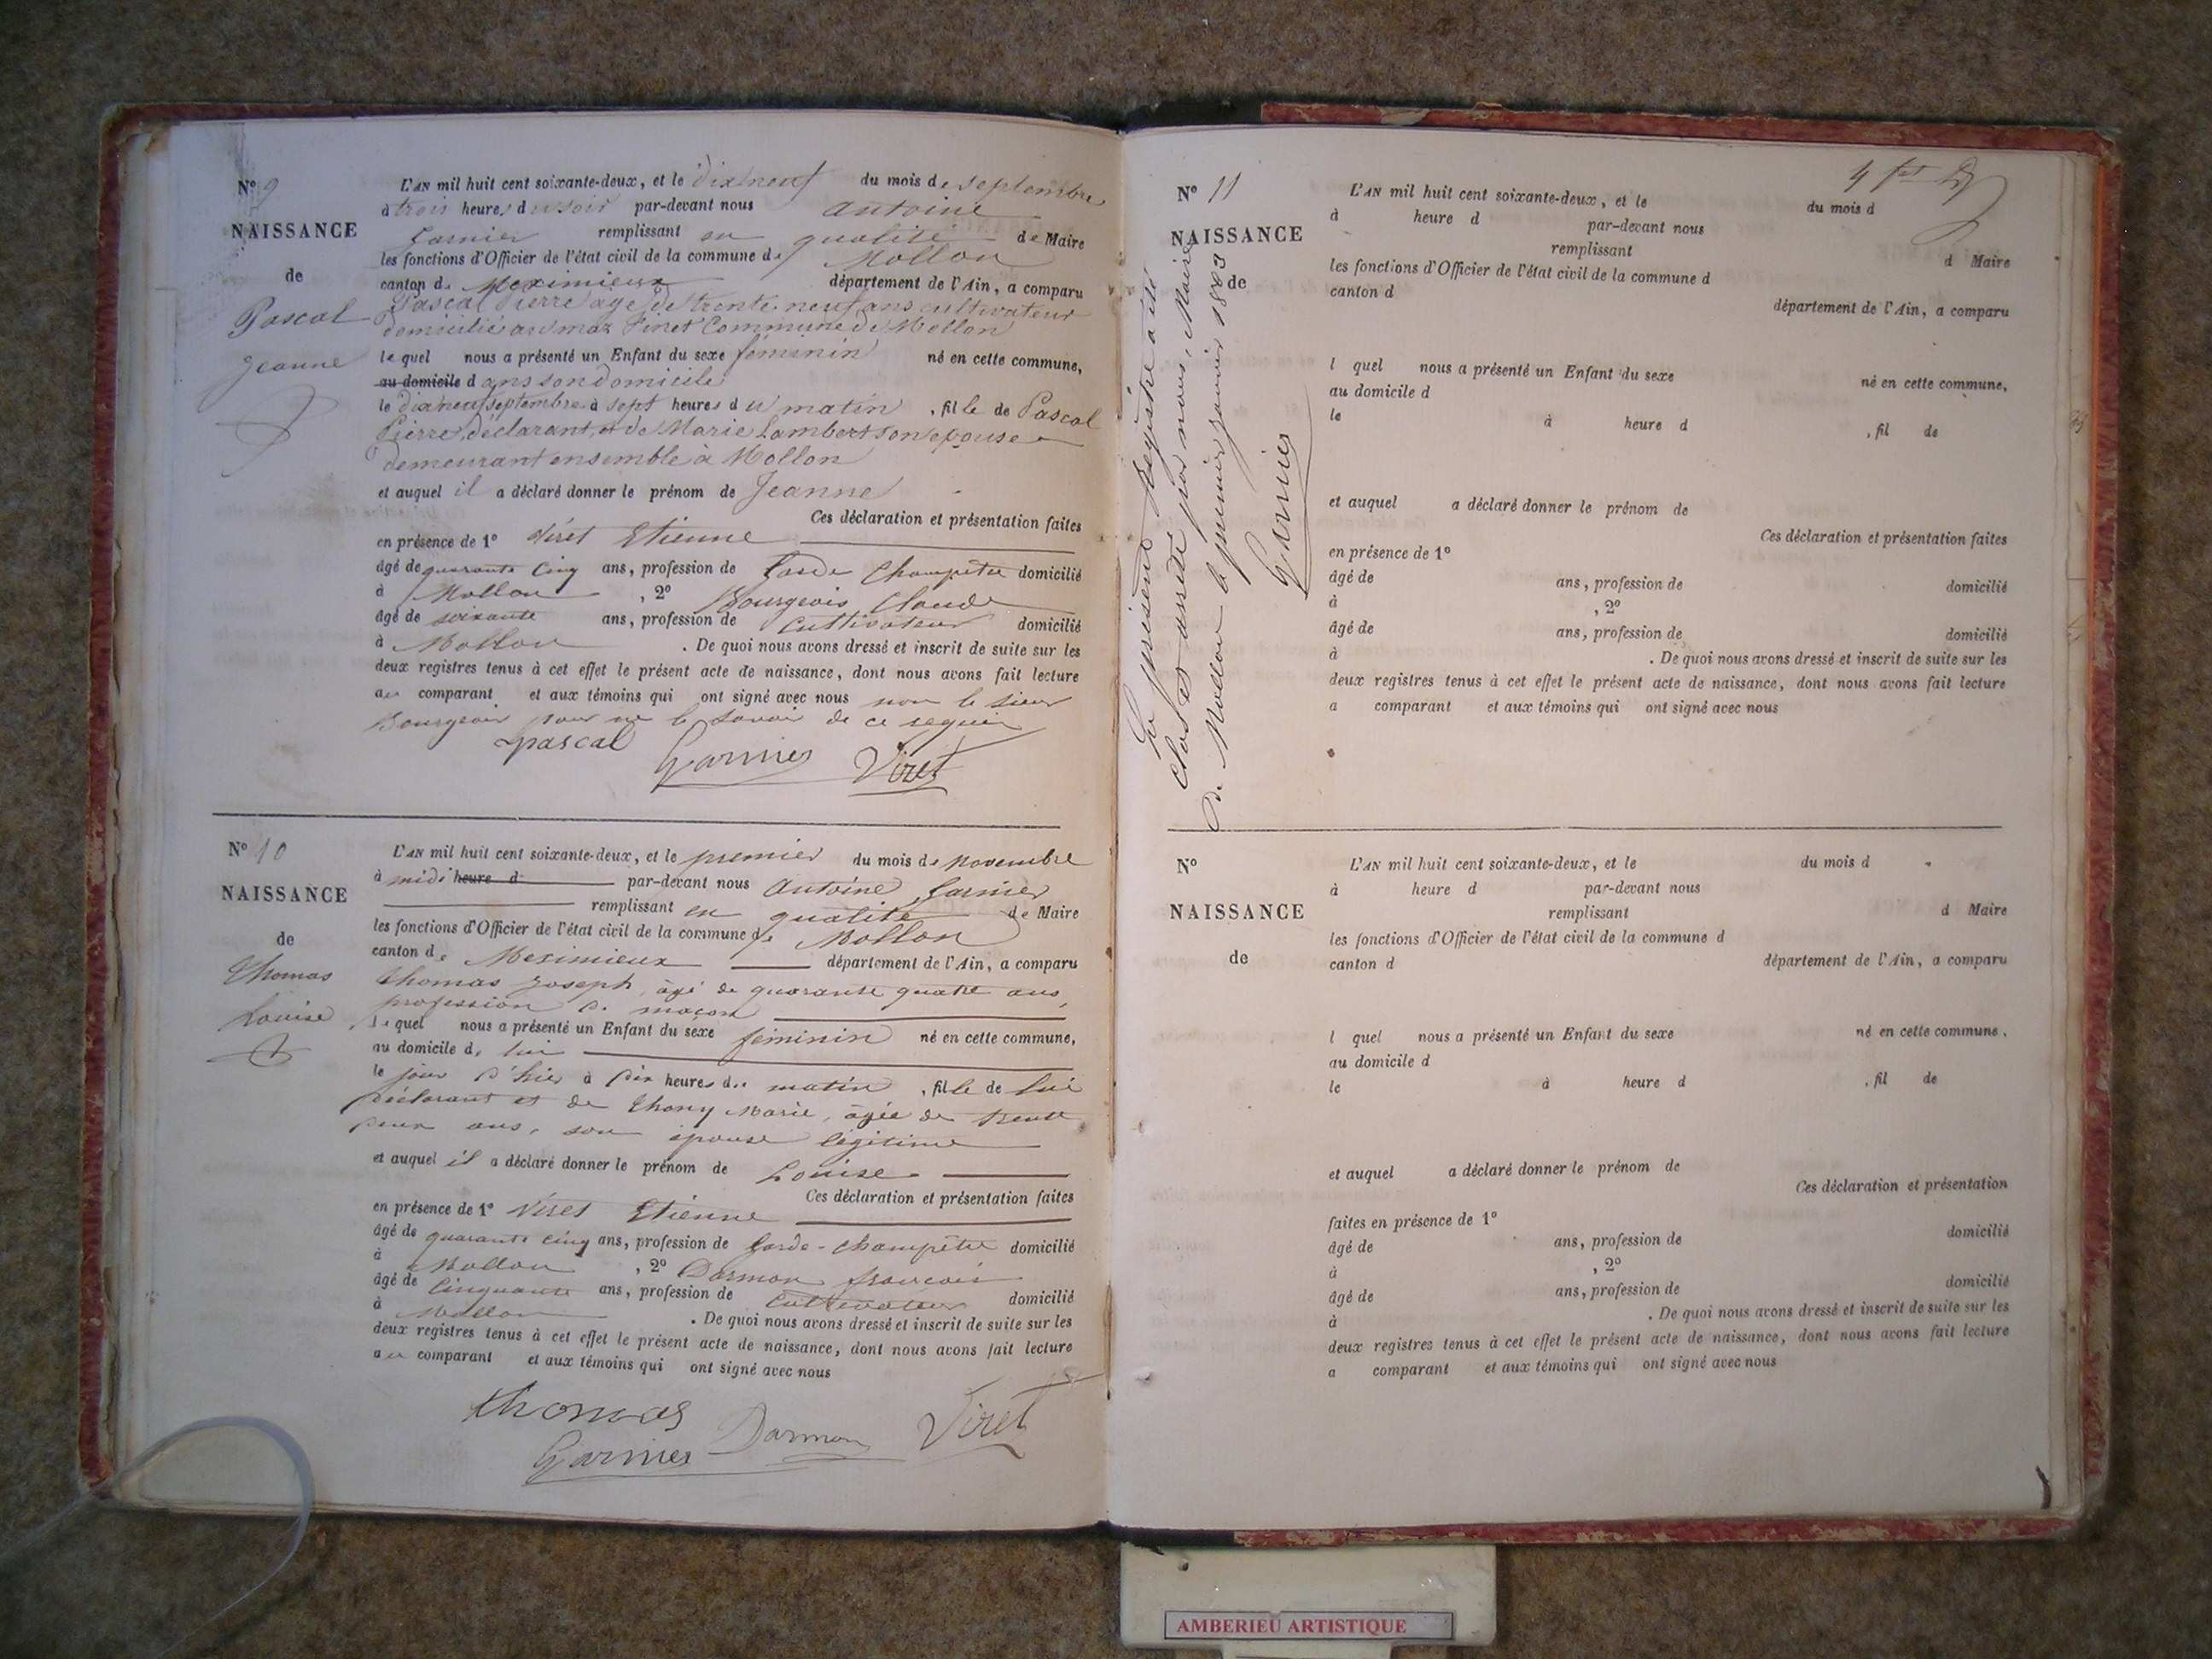 N° 9
NAISSANCE
de
Pascal
Jeanne
L'AN mil huit cent soixante-deux, et le dix neuf du mois de septembre
à trois heures du soir par-devant nous Antoine
Garnier remplissant en qualité de Maire
les fonctions d'Officier de l'état civil de la commune de Mollon
canton de Meximieux département de l'Ain, a comparu
Pascal Pierre agé de trente neuf ans cultivateur
domicilié au maz Pinet Commune de Mollon
lequel nous a présenté un Enfant du sexe féminin né en cette commune,
au domicile dans son domicile
le dix neuf septembre à sept heures du matin, fille de Pascal
Pierre, déclarant, et de Marie Lambert son epouse
demeurant ensemble à Mollon
et auquel il a déclaré donner le prénom de Jeanne
Ces déclaration et présentation faites
en présence de 1° Viret Etienne
âgé de quarante cinq ans, profession de Garde Champêtre domicilié
à Mollon, 2° Bourgeois Claude
âgé de soixante ans, profession de Cultivateur domicilié
à Mollon. De quoi nous avons dressé et inscrit de suite sur les
deux registres tenus à cet effet le présent acte de naissance, dont nous avons fait lecture
au comparant et aux témoins qui ont signé avec nous non le sieur
Bourgeois pour ne le savoir de ce requis
pascal
Garnier Viret
N° 10
NAISSANCE
de
Thomas
Louise
L'AN mil huit cent soixante-deux, et le premier du mois de novembre
à midi heure d par-devant nous Antoine Garnier
remplissant en qualité de Maire
les fonctions d'Officier de l'état civil de la commune de Mollon
canton de Meximieux département de l'Ain, a comparu
Thomas Joseph, âgé de quarante quatre ans,
profession de maçon
lequel nous a présenté un Enfant du sexe féminin né en cette commune,
au domicile de lui
le jour d'hier à dix heures du matin, fille de lui
déclarant et de Thony Marie, âgée de trente
deux ans, son épouse légitime
et auquel il a déclaré donner le prénom de Louise
Ces déclaration et présentation faites
en présence de 1° Viret Etienne
âgé de quarante cinq ans, profession de Garde-Champêtre domicilié
à Mollon, 2° Darmon françois
âgé de Cinquante ans, profession de Cultivateur domicilié
à Mollon. De quoi nous avons dressé et inscrit de suite sur les
deux registres tenus à cet effet le présent acte de naissance, dont nous avons fait lecture
au comparant et aux témoins qui ont signé avec nous
thomas
Garnier Darmon Viret
N° 11
NAISSANCE
de
Le présent registre a été
clos et arrêté par nous, Maire
de Mollon le premier janvier 1863
Garnier
L'AN mil huit cent soixante-deux, et le du mois d
à heure d par-devant nous
remplissant d Maire
les fonctions d'Officier de l'état civil de la commune d
canton d département de l'Ain, a comparu
l quel nous a présenté un Enfant du sexe né en cette commune,
au domicile d
le à heure d , fil de
et auquel a déclaré donner le prénom de
Ces déclaration et présentation faites
en présence de 1°
âgé de ans, profession de domicilié
à , 2°
âgé de ans, profession de domicilié
à . De quoi nous avons dressé et inscrit de suite sur les
deux registres tenus à cet effet le présent acte de naissance, dont nous avons fait lecture
a comparant et aux témoins qui ont signé avec nous
N°
NAISSANCE
de
L'AN mil huit cent soixante-deux, et le du mois d
à heure d par-devant nous
remplissant d Maire
les fonctions d'Officier de l'état civil de la commune d
canton d département de l'Ain, a comparu
l quel nous a présenté un Enfant du sexe né en cette commune.
au domicile d
le à heure d , fil de
et auquel a déclaré donner le prénom de
Ces déclaration et présentation
faites en présence de 1°
âgé de ans, profession de domicilié
à , 2°
âgé de ans, profession de domicilié
à . De quoi nous avons dressé et inscrit de suite sur les
deux registres tenus à cet effet le présent acte de naissance, dont nous avons fait lecture
a comparant et aux témoins qui ont signé avec nous
AMBERIEU ARTISTIQUE